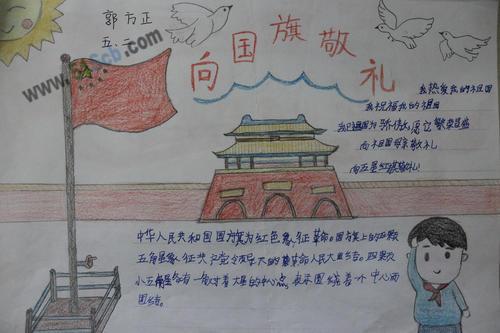 郭方正
五.二
向国旗敬礼
我热爱我的祖国
我祝福我的祖国
向祖国母亲敬礼
向五星红旗敬礼
中华人民共和国国旗为红色象征革命。国旗上的五颗
五角星象征共产党领导大的革命人民大团结。四颗
小五角星各有一角对着大星的中心点,表示围绕着一个中心而
团结。